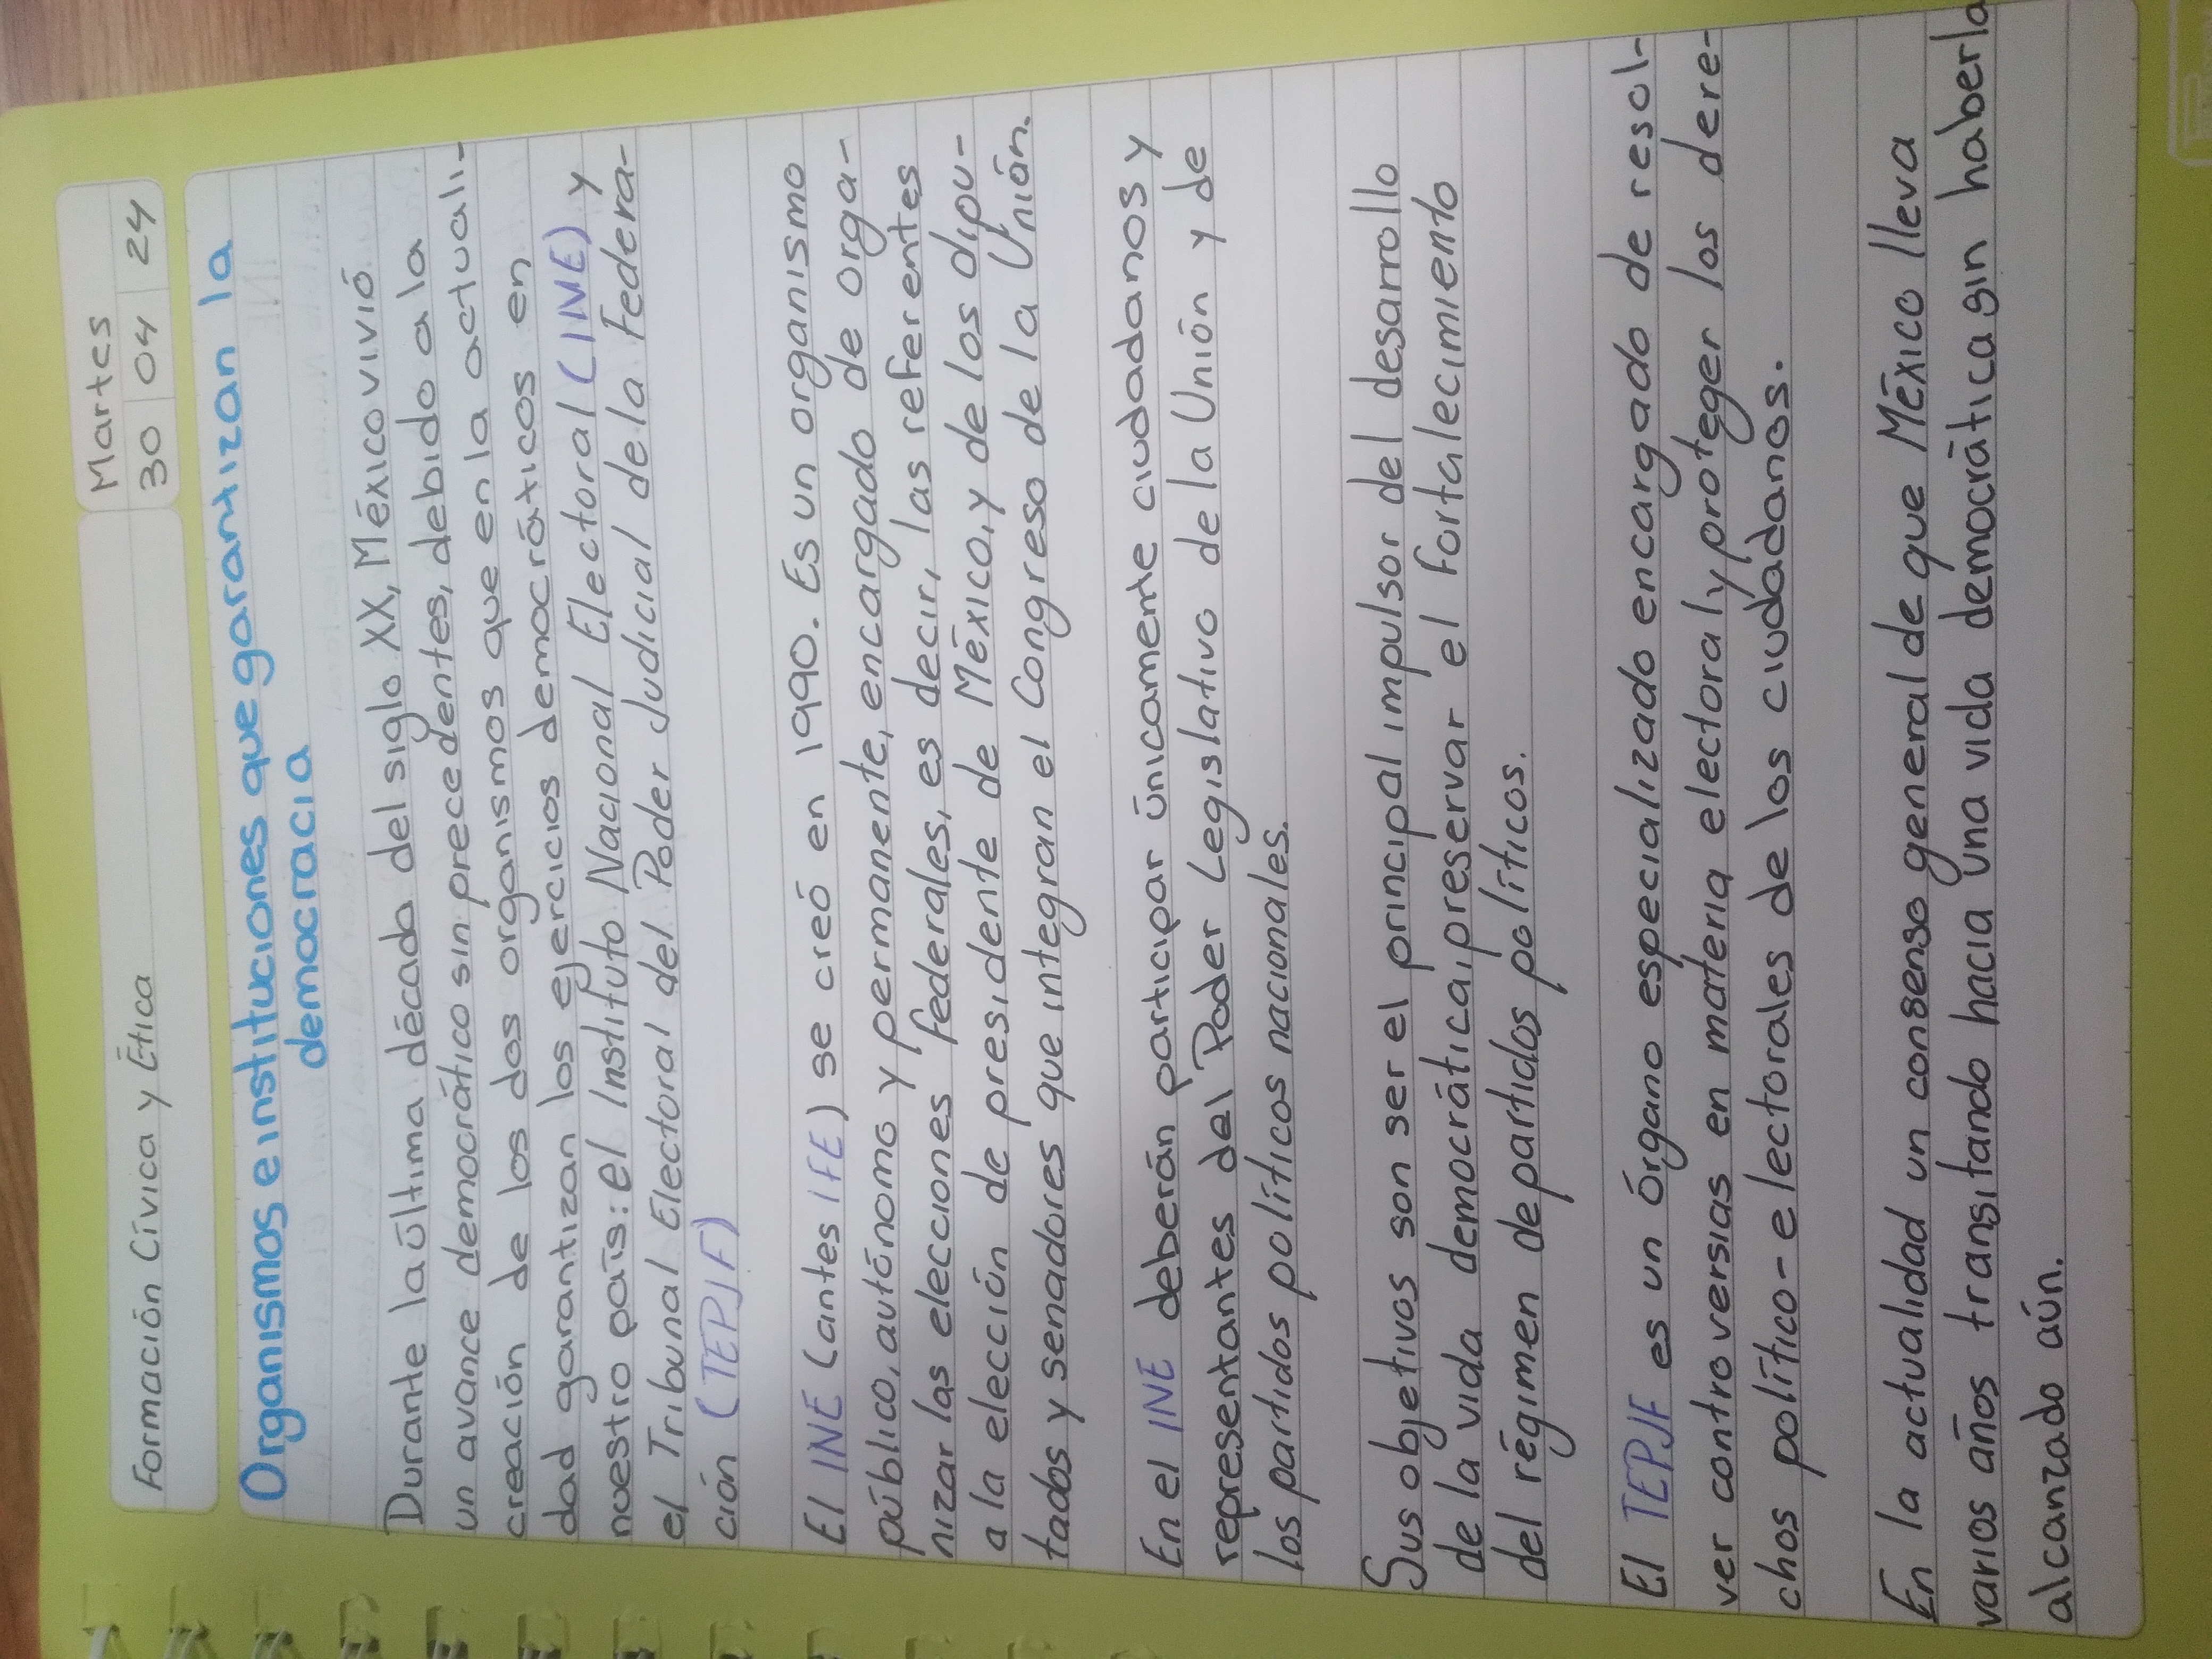 Formación Cívica y Ética
Martes
30 04 24
Organismos e instituciones que garantizan la
democracia
Durante la última década del siglo XX, México vivió
un avance democrático sin precedentes, debido a la
creación de los dos organismos que en la actuali-
dad garantizan los ejercicios democráticos en
nuestro país: el Instituto Nacional Electoral (INE) y
el Tribunal Electoral del Poder Judicial de la Federa-
ción (TEPJF)
El INE (antes IFE) se creó en 1990. Es un organismo
público, autónomo y permanente, encargado de orga-
nizar las elecciones federales, es decir, las referentes
a la elección de presidente de México, y de los dipu-
tados y senadores que integran el Congreso de la Unión.
En el INE deberán participar únicamente ciudadanos y
representantes del Poder Legislativo de la Unión y de
los partidos políticos nacionales.
Sus objetivos son ser el principal impulsor del desarrollo
de la vida democrática, preservar el fortalecimiento
del régimen de partidos políticos.
El TEPJF es un órgano especializado encargado de resol-
ver controversias en materia electoral y proteger los dere-
chos político-electorales de los ciudadanos.
En la actualidad un consenso general de que México lleva
varios años transitando hacia una vida democrática sin haberla
alcanzado aún.